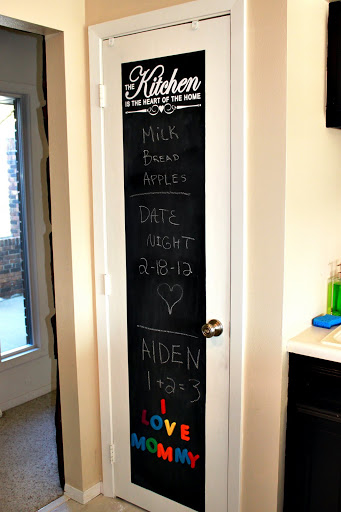 THE Kitchen
IS THE HEART OF THE HOME
MILK
BREAD
APPLES
DATE
NIGHT
2-18-12
AIDEN
1+2=3
I
LOVE
MOMMY